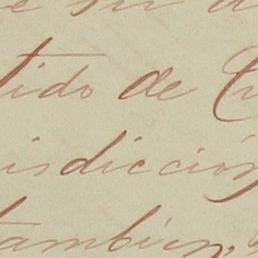 tido de
isdicción
tambien,